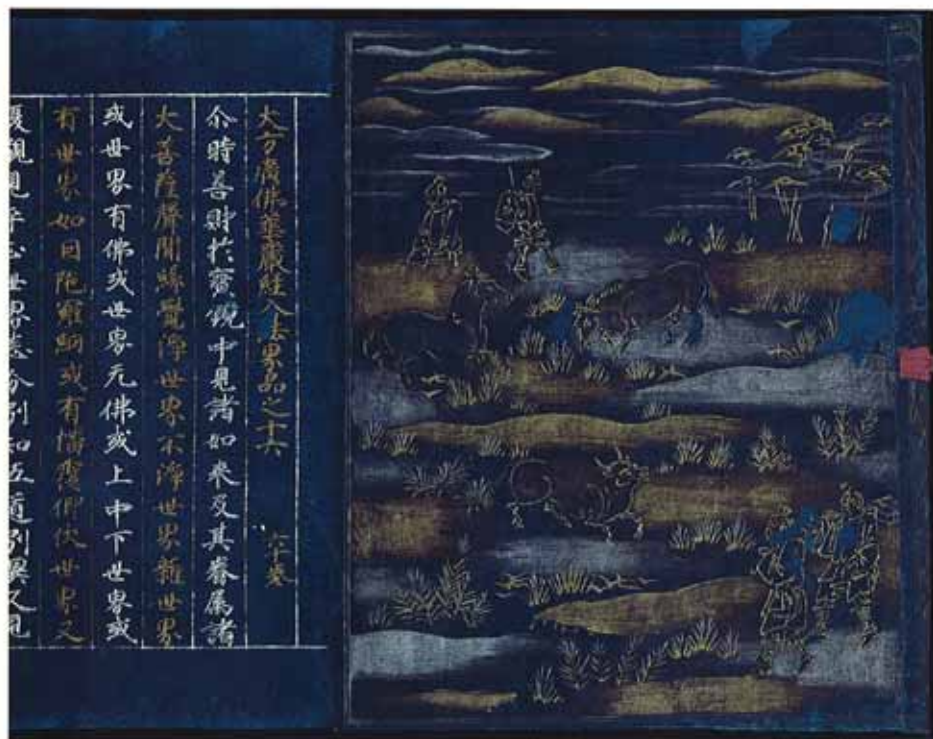 大方廣佛華嚴經入法界品之十六 六十卷
尒時善財於寳鏡中見諸如来及其眷属諸
大菩薩聲聞縁覺淨世界不淨世界雜世界
或世界有佛或世界无佛或上中下世界或
有世界如因陀羅網或有幡覆仰伏世界又
見平正世界悉分別知五道別異又見